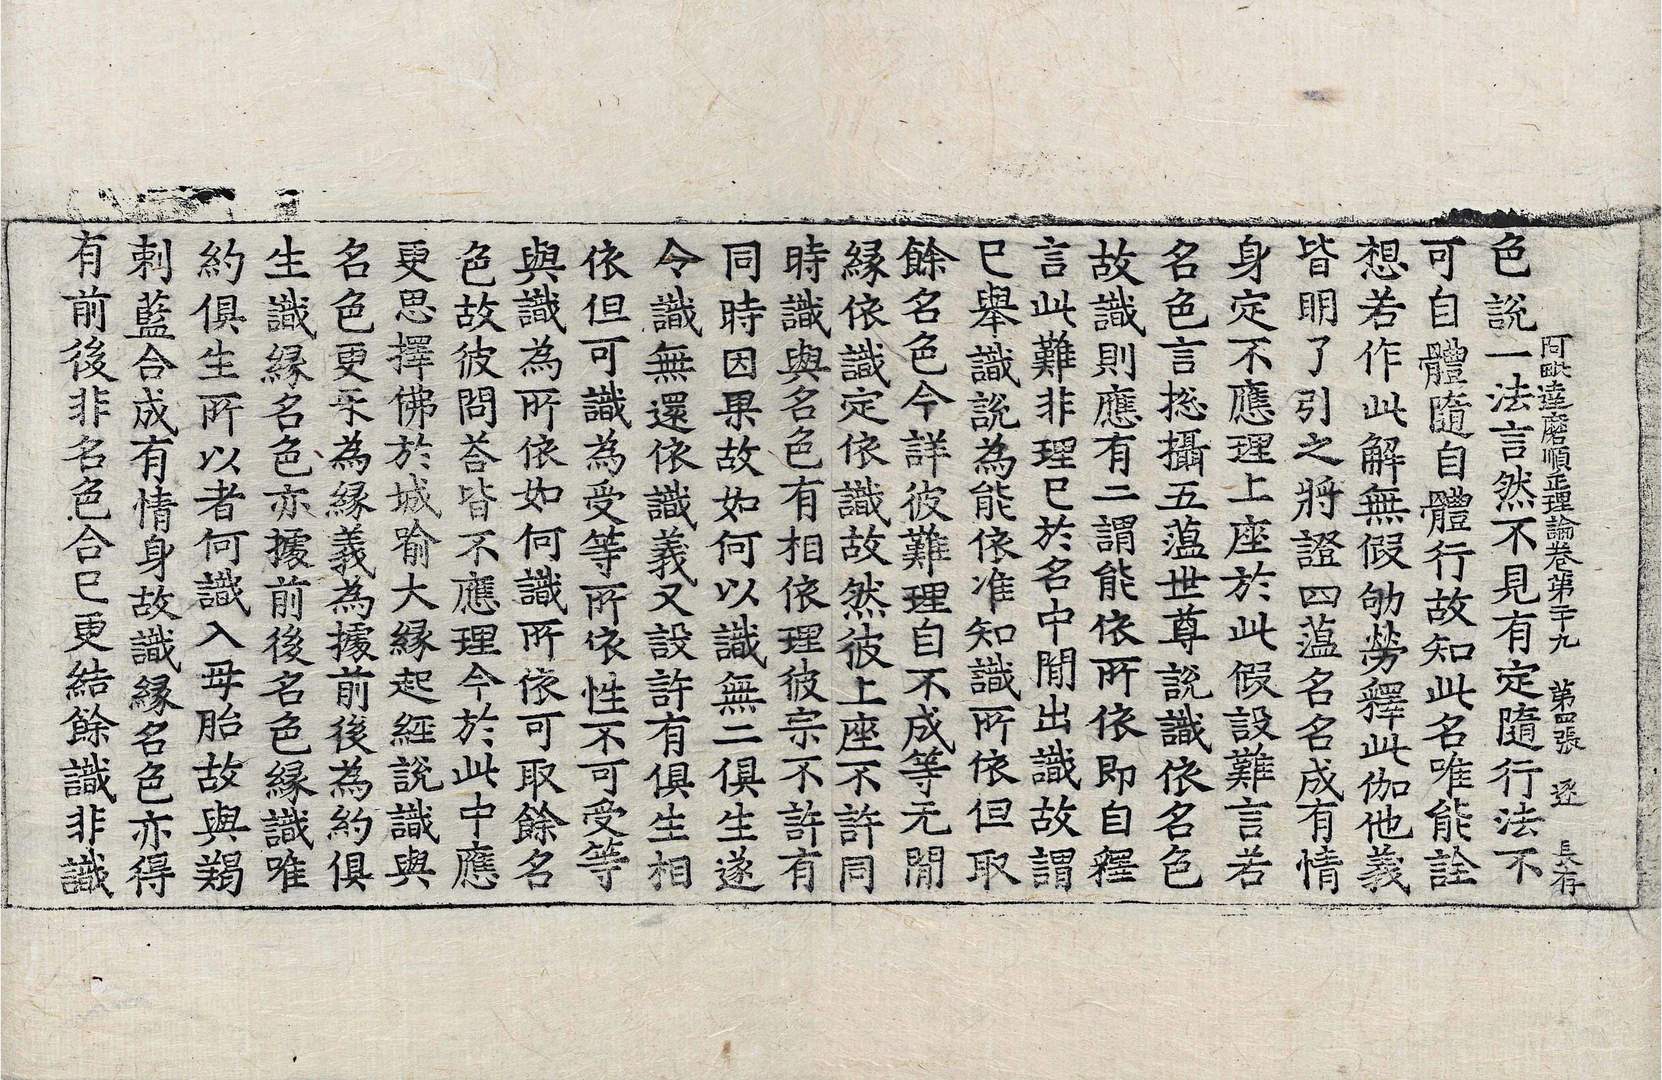 阿毗達磨順正理論卷第二十九 第四張 逐 長存
色說一法言然不見有定隨行法不
可自體隨自體行故知此名唯能詮
想若作此解無假劬勞釋此伽他義
皆明了引之將證四蕰名名成有情
身定不應理上座於此假設難言若
名色言捴攝五蕰世尊說識依名色
故識則應有二謂能依所依即自釋
言此難非理已於名中開出識故謂
已舉識說為能依准知識所依但取
餘名色今詳彼難理自不成等无閒
縁依識定依識故然彼上座不許同
時識與名色有相依理彼宗不許有
同時因果故如何以識無二俱生遂
令識無還依識義又設許有俱生相
依但可識為受等所依性不可受等
與識為所依如何識所依可取餘名
色故彼問荅皆不應理今於此中應
更思擇佛於城喻大縁起經說識與
名色更㸦為縁義為據前後為約俱
生識縁名色亦據前後名色縁識唯
約俱生所以者何識入母胎故與羯
剌藍合成有情身故識縁名色亦得
有前後非名色合已更結餘識非識